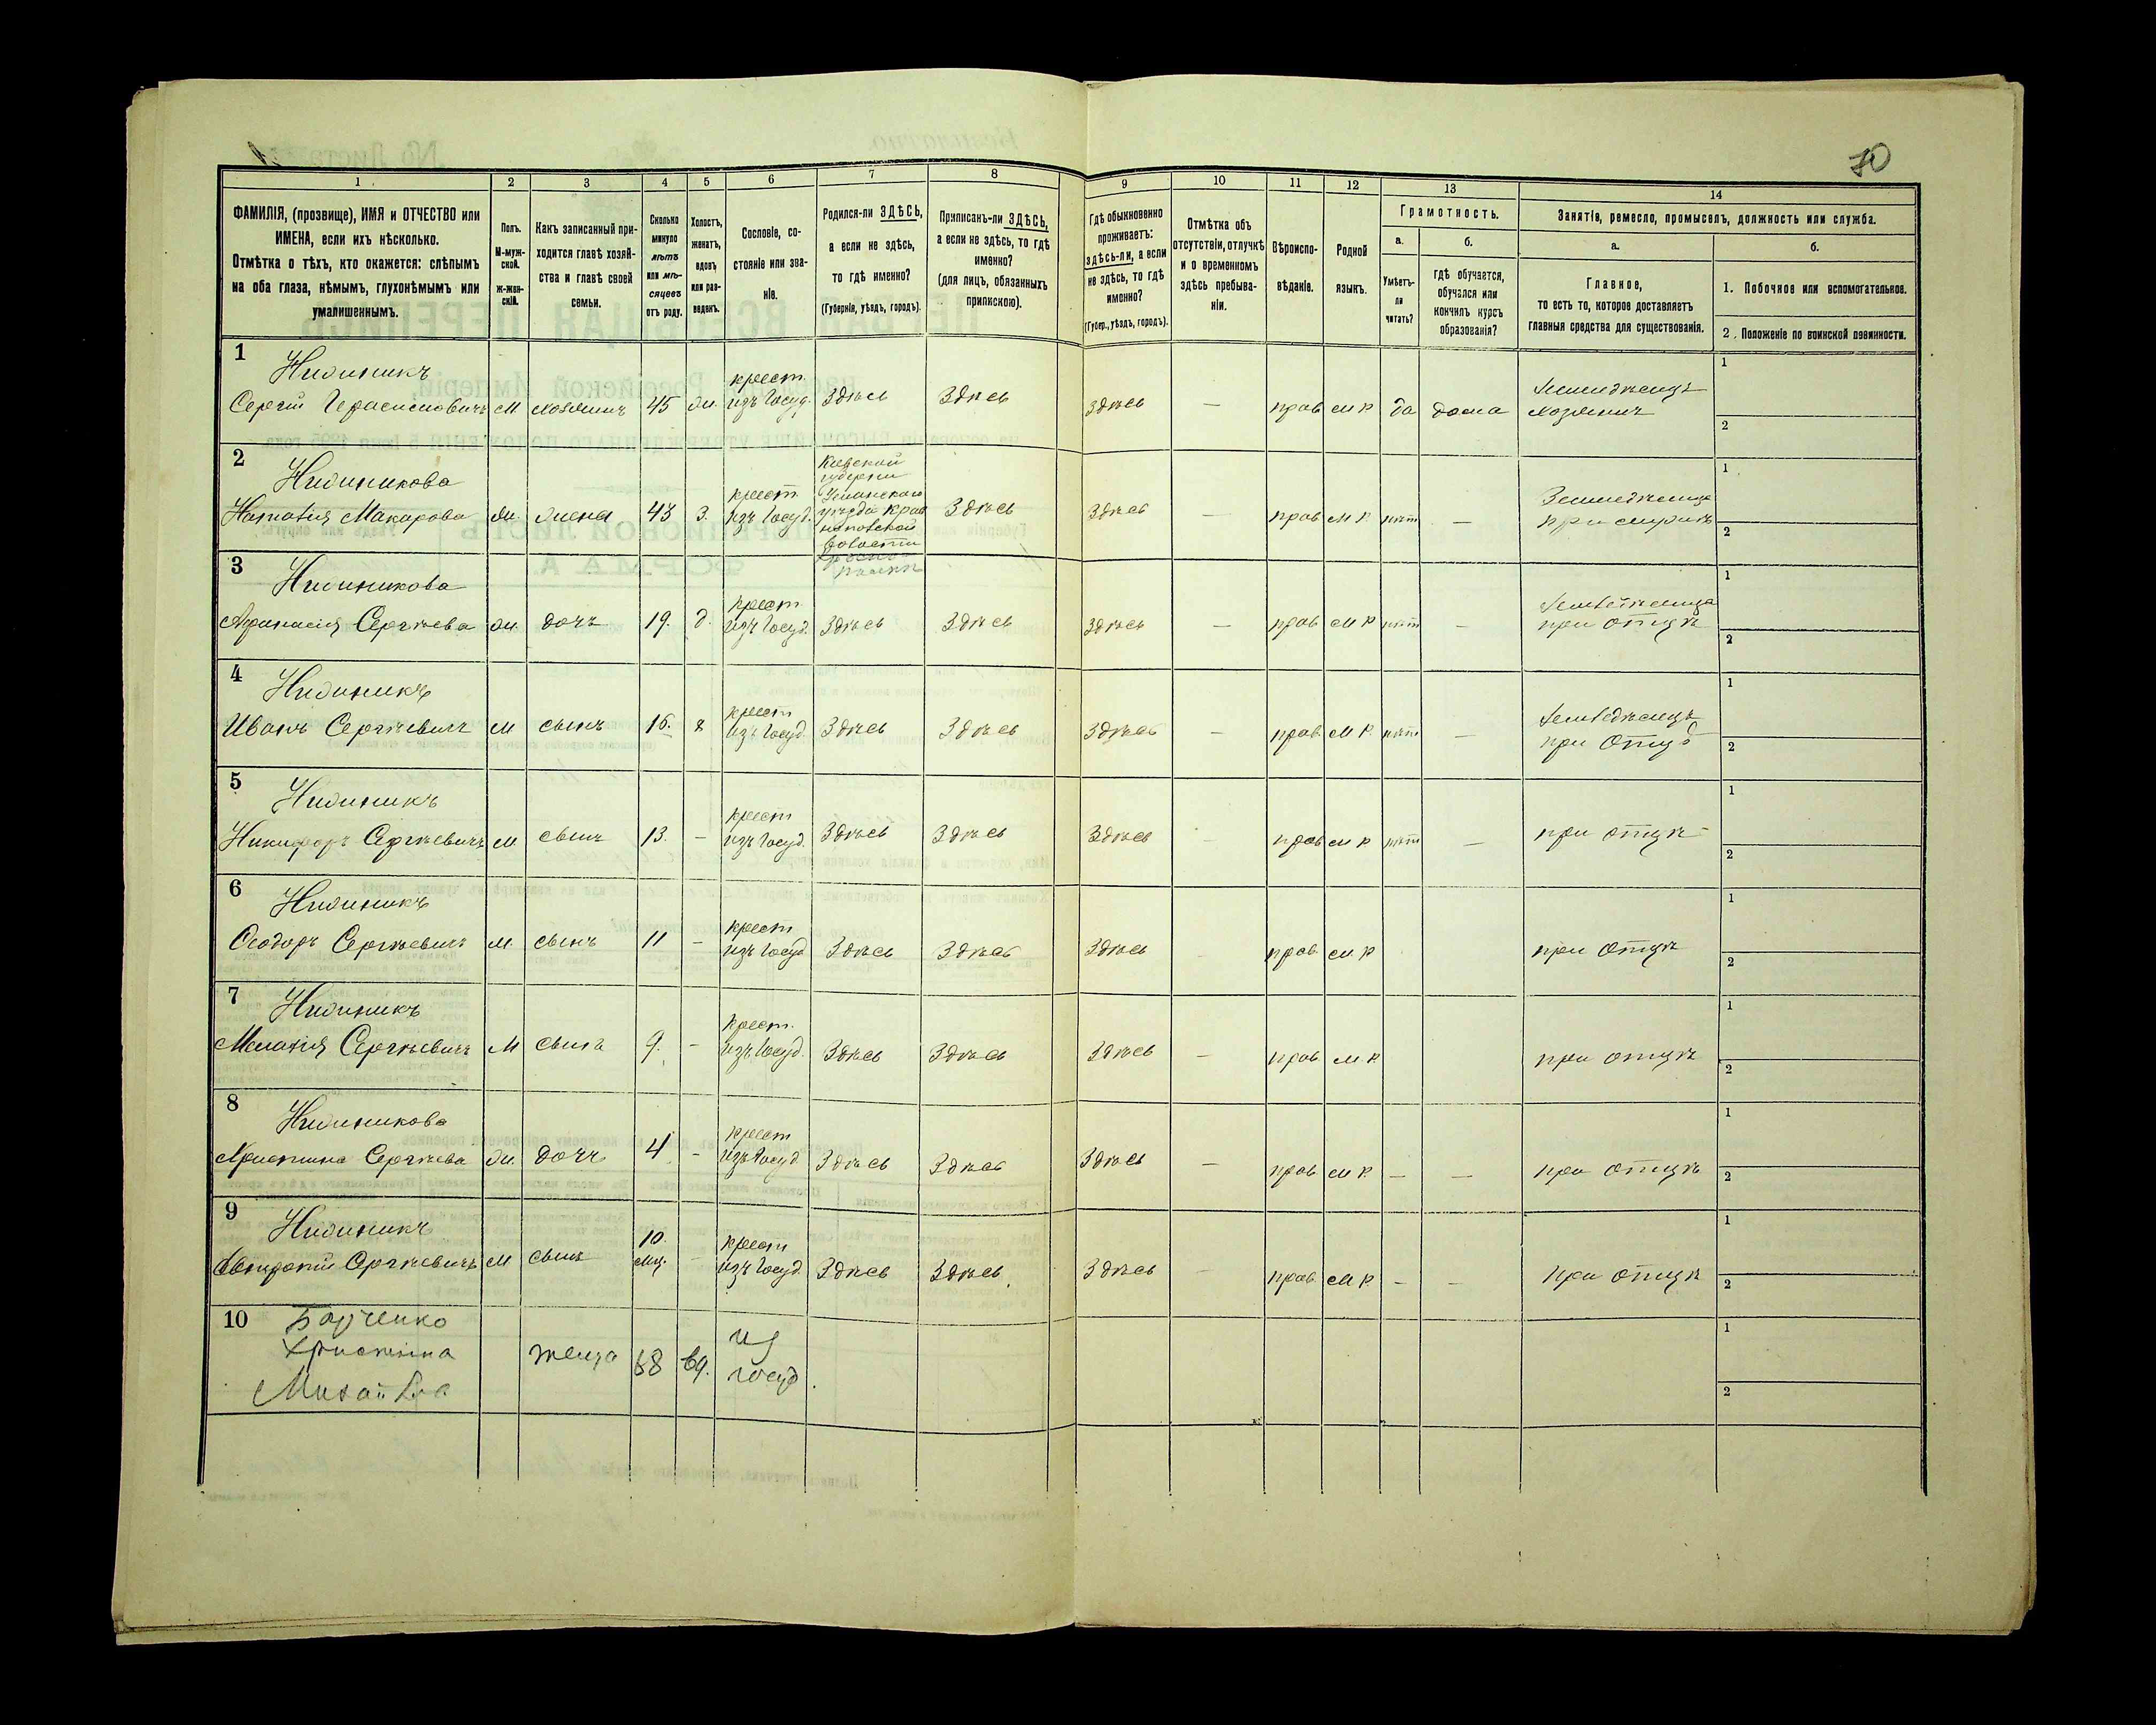 70
1 2 3 4 5 6 7 8 9 10 11 12 13 14
ФАМИЛІЯ, (прозвище), ИМЯ и ОТЧЕСТВО или
ИМЕНА, если ихъ нѣсколько.
Отмѣтка о тѣхъ, кто окажется: слѣпымъ
на оба глаза, нѣмымъ, глухонѣмымъ или
умалишеннымъ.
Полъ.
М-муж-
ской.
ж-жен-
скій.
Какъ записанный при-
ходится главѣ хозяй-
ства и главѣ своей
семьи.
Сколько
минуло
лѣтъ
или мѣ-
сяцевъ
отъ роду.
Холостъ,
женатъ,
вдовъ
или раз-
веденъ.
Сословіе, со-
стояніе или зва-
ніе.
Родился-ли ЗДѢСЬ,
а если не здѣсь,
то гдѣ именно?
(Губернія, уѣздъ, городъ).
Приписанъ-ли ЗДѢСЬ,
а если не здѣсь, то гдѣ
именно?
(для лицъ, обязанныхъ
припискою).
Гдѣ обыкновенно
проживаетъ:
здѣсь-ли, а если
не здѣсь, то гдѣ
именно?
(Губер., уѣздъ, городъ).
Отмѣтка объ
отсутствіи, отлучкѣ
и о временномъ
здѣсь пребыва-
ніи.
Вѣроиспо-
вѣданіе.
Родной
языкъ.
Грамотность.
а.
Умѣетъ-
ли
читать?
б.
гдѣ обучается,
обучался или
кончилъ курсъ
образованія?
Занятіе, ремесло, промыселъ, должность или служба.
а.
Главное,
то есть то, которое доставляетъ
главныя средства для существованія.
б.
1. Побочное или вспомогательное.
2. Положеніе по воинской повинности.
1
Сергій Герасимовичъ М хозяинъ 45 ж. крест. изъ Госуд. Здѣсь Здѣсь Здѣсь — прав м р да дома Земледѣлецъ хозяинъ
1
2
2
Наталія Макарова ж. жена 43 З. крест. изъ Госуд. Кіевской
губерніи
Уманскаго
уѣзда
волости
Здѣсь Здѣсь — прав м р нѣт — Земледѣлица при мужѣ
1
2
3
Сергѣева ж дочь 19. д. крест изъ Госуд. Здѣсь Здѣсь Здѣсь — прав м р нѣт — Земледѣлица при отцѣ
1
2
4
Иванъ Сергѣевичъ м сынъ 16. х крест изъ Госуд. Здѣсь Здѣсь Здѣсь — прав. м р. нѣт — Земледѣлецъ при отцѣ
1
2
5
Никифоръ Сергѣевичъ м сынъ 13. — крест изъ Госуд. Здѣсь Здѣсь Здѣсь прав м р нѣт — при отцѣ
1
2
6
Ѳеодоръ Сергѣевичъ м. сынъ 11 — крест изъ Госуд Здѣсь Здѣсь Здѣсь прав. м. р при отцѣ
1
2
7
Сергѣевичъ М сынъ 9. — крест. изъ Госуд. Здѣсь Здѣсь Здѣсь — прав м. р при отцѣ
1
2
8
Христина Сергѣева ж. дочь 4 — крест изъ Госуд Здѣсь Здѣсь Здѣсь — прав м р. — — при отцѣ
1
2
9
Сергѣевичъ М сынъ 10. мц. — крест изъ Госуд. Здѣсь Здѣсь Здѣсь прав. м р — — при отцѣ
1
2
10
Христина вд. из госуд.
1
2